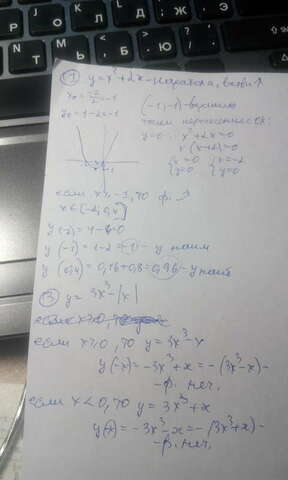 ① y = x² + 2x - парабола, ветви ↑
x₀ = -2/2 = -1
(-1; -1) - вершина
y₀ = 1 - 2 = -1
точки пересечения с OX:
y = 0 : x² + 2x = 0
x(x+2) = 0
x = 0 x = -2
y = 0 y = 0
если x > -1, то ф. ↗
x ∈ [-2; 0,4]
y(-2) = 4 - 4 = 0
y(-1) = 1 - 2 = -1 - y наим
y(0,4) = 0,16 + 0,8 = 0,96 - y наиб
③ y = 3x³ - |x|
если x > 0, то y = 3x³ - x
y(-x) = -3x³ + x = -(3x³ - x) -
- ф. неч.
если x < 0, то y = 3x³ + x
y(-x) = -3x³ - x = -(3x³ + x) -
- ф. неч.